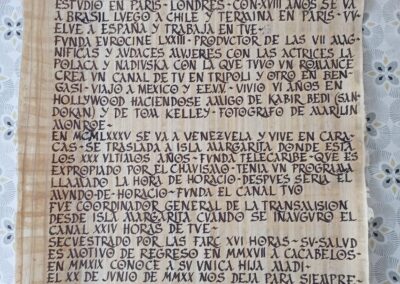 ESTUDIO EN PARIS - LONDRES - CON XVIII AÑOS SE VA
A BRASIL LUEGO A CHILE Y TERMINA EN PARIS - VU-
ELVE A ESPAÑA Y TRABAJA EN TVE -
FUNDA EUROCINE LXXIII - PRODUCTOR DE LAS VII MAG-
NIFICAS Y AUDACES MUJERES CON LAS ACTRICES LA
POLACA Y NADIUSKA CON LA QUE TUVO UN ROMANCE
CREA UN CANAL DE TV EN TRIPOLI Y OTRO EN BEN-
GASI - VIAJO A MEXICO Y EE.VV. - VIVIO VI AÑOS EN
HOLLYWOOD HACIENDOSE AMIGO DE KABIR BEDI (SAN-
DOKAN) Y DE TOM KELLEY - FOTOGRAFO DE MARILIN
MONROE -
EN MCMLXXXV SE VA A VENEZUELA Y VIVE EN CARA-
CAS - SE TRASLADA A ISLA MARGARITA DONDE ESTA
LOS XXX ULTIMOS AÑOS - FUNDA TELECARIBE - QUE ES
EXPROPIADO POR EL CHAVISMO - TENIA UN PROGRAMA
LLAMADO LA HORA DE HORACIO - DESPUES SERIA EL
MUNDO DE HORACIO - FUNDA EL CANAL TVO
FUE COORDINADOR GENERAL DE LA TRANSMISION
DESDE ISLA MARGARITA CUANDO SE INAUGURO EL
CANAL XXIV HORAS DE TVE -
SECUESTRADO POR LAS FARC XVI HORAS - SU SALUD
ES MOTIVO DE REGRESO EN MMXVII A CACABELOS -
EN MMXIX CONOCE A SU UNICA HIJA MADI -
EL XX DE JUNIO DE MMXX NOS DEJA PARA SIEMPRE -